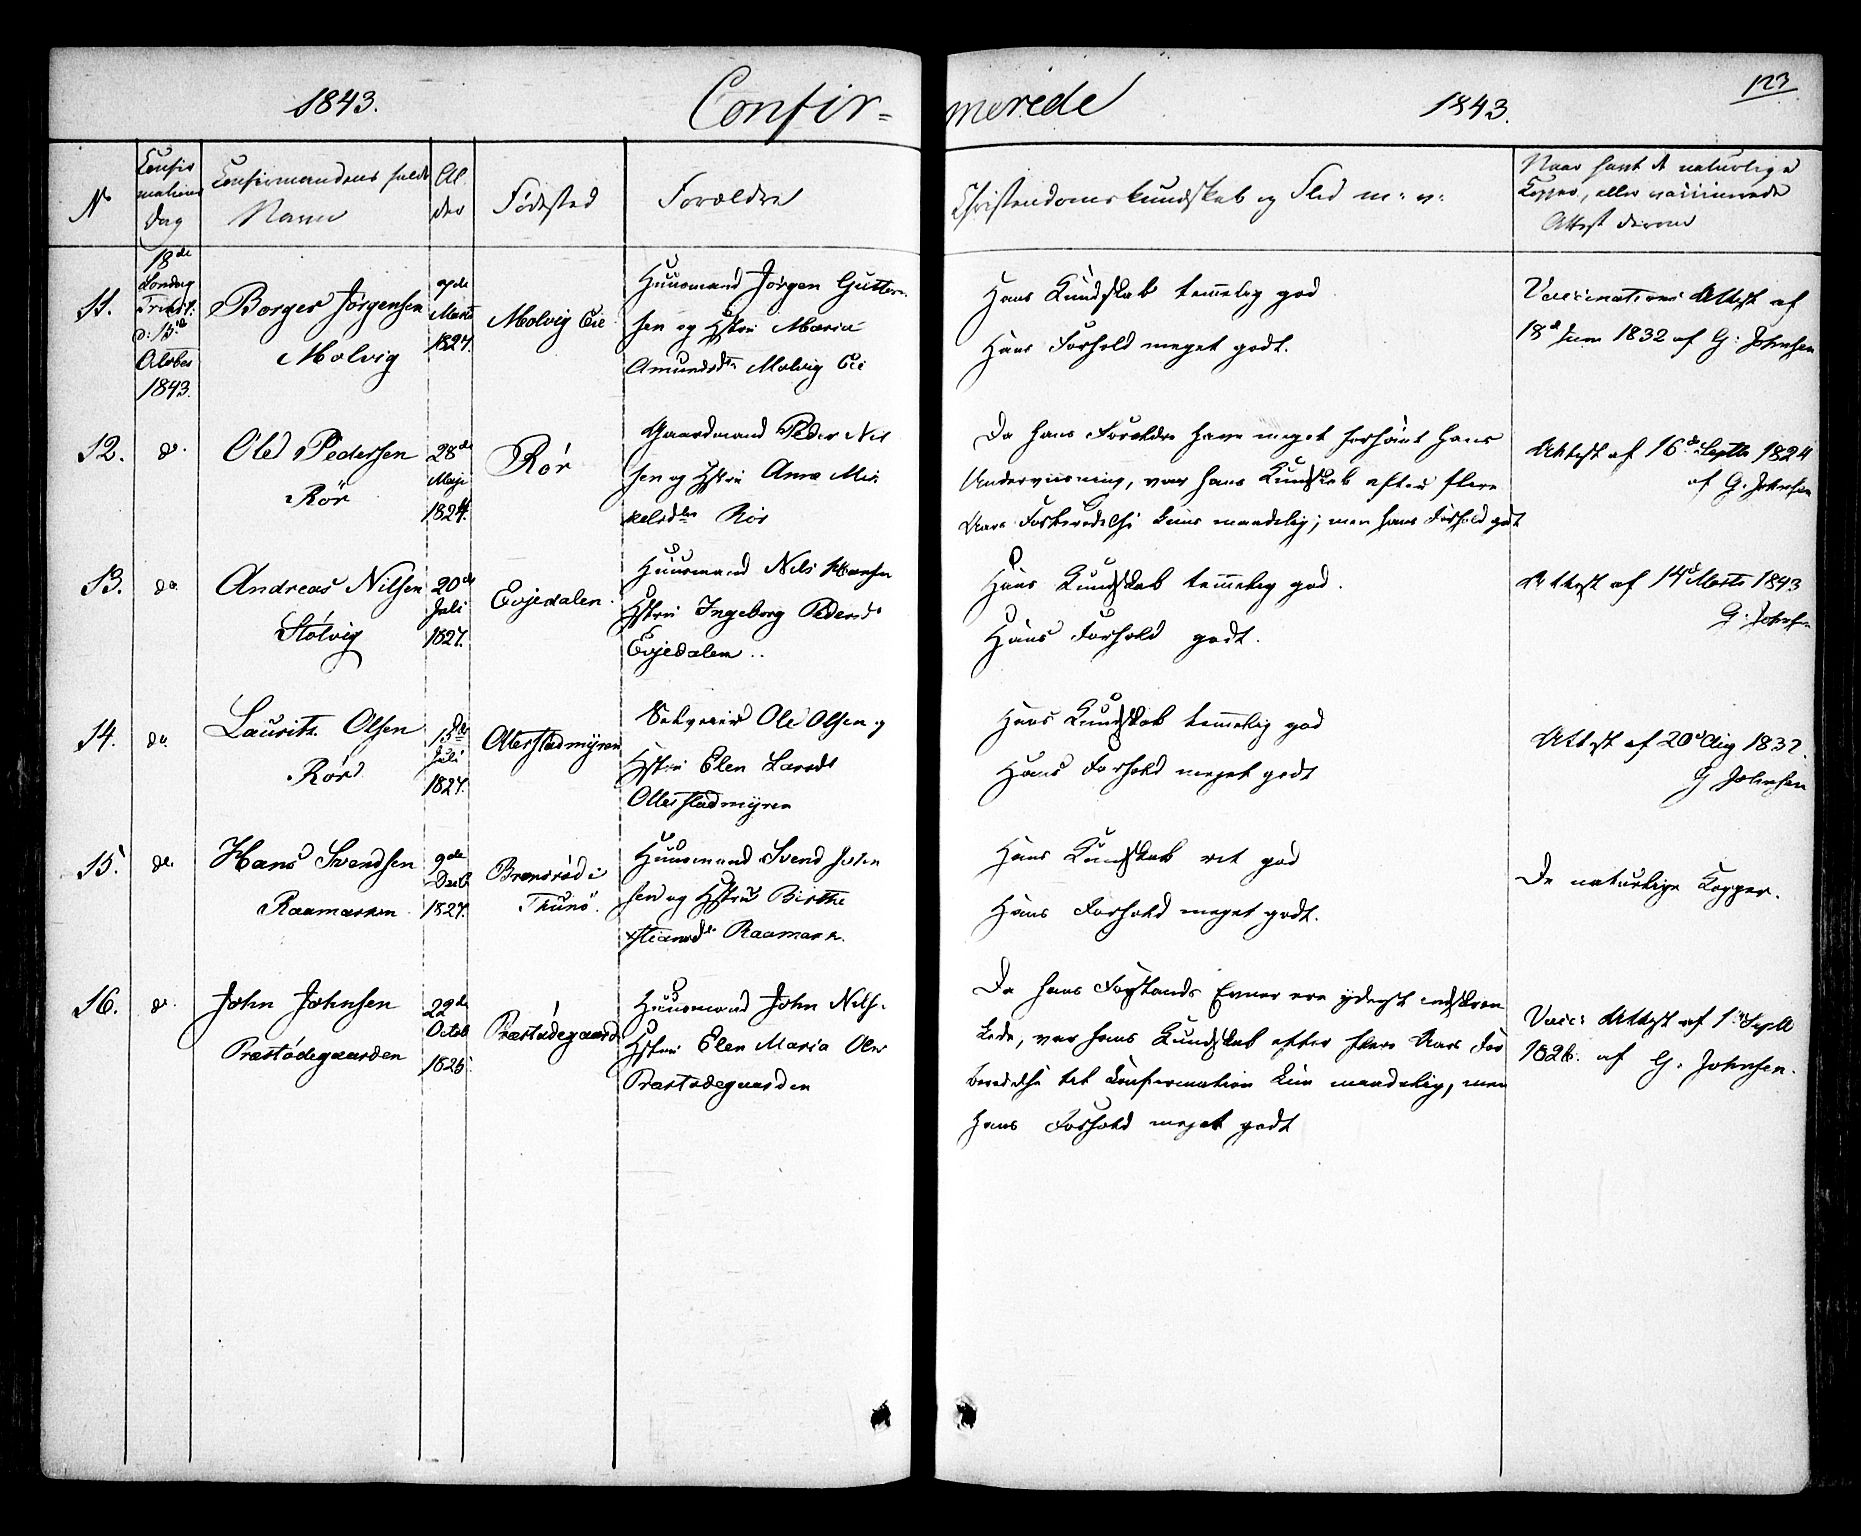 1843.
Confir=
merede
1843.
123
No
Confir
mations
Dag
Confirmandens fulde
Navn
Al
der
Fødested
Forældre
Christendomskundskab og Flid m: v:
Naar havt de naturlige
Kopper, eller vaccinerede
Attest derom
11.
18de
Søndag
Trinit:
d: 15de
Octbr
1843.
Borger Jørgensen
Molvig
Marts
1827.
Molvig Eie
Huusmand Jørgen Gutter
sen og Hstru Maria
Amundsdtr Molvig Eie
Hans Kundskab temmelig god
Hans Forhold meget godt.
Vaccinations Attest af
18de Juni 1832 af G: Johnsen
12.
do.
Ole Pedersen
Rør
28de
Maji
1824.
Rør
Gaardmand Peder Nil
sen og Hstru Anne Mi
kelsdtr Rør
Da hans Forældre have meget forsømt hans
Underviisning, var hans Kundskab efter flere
Aars Forberedelse kuns maadelig; men hans Forhold godt
Attest af 16de Septbr 1824
af G. Johnsen
13.
do
Andreas Nilsen
Stølvig
20de
Juli
1827.
Evjedalen.
Huusmand Nils Hansen
Hstru Ingeborg Pedersd
Evjedalen ..
Hans Kundskab temmelig god.
Hans Forhold godt.
Attest af 14de Marts 1843
G. Johnsen
14.
do.
Lauritz Olsen
Rør
15de
Juli
1827.
Ollerstadmyren
Selveier Ole Olsen og
Hstru Elen Larsdt
Ollerstadmyren
Hans Kundskab temmelig god
Hans Forhold meget godt
Attest af 20de Aug 1832.
G Johnsen
15.
do.
Hans Svendsen
Raamarken
9de
Decb
1827.
Brønsrød i
Thunø.
Huusmand Svend
sen og Hstru Birthe
Raamark.
Hans Kundskab ret god
Hans Forhold meget godt.
De naturlige Kopper.
16.
do.
John Johnsen
Præstødegaarden
22de
Octob
1825.
Præstødegaard
Huusmand John Nils.
Hstru Elen Maria Ols
Præstødegaarden
Da hans Forstands Evner ere yderst indskræn
kede, var hans Kundskab efter flere Aars For
beredelse til Confirmation kun maadelig, men
hans Forhold meget godt
Vacc: Attest af 1ste Septb
1826. af G. Johnsen.